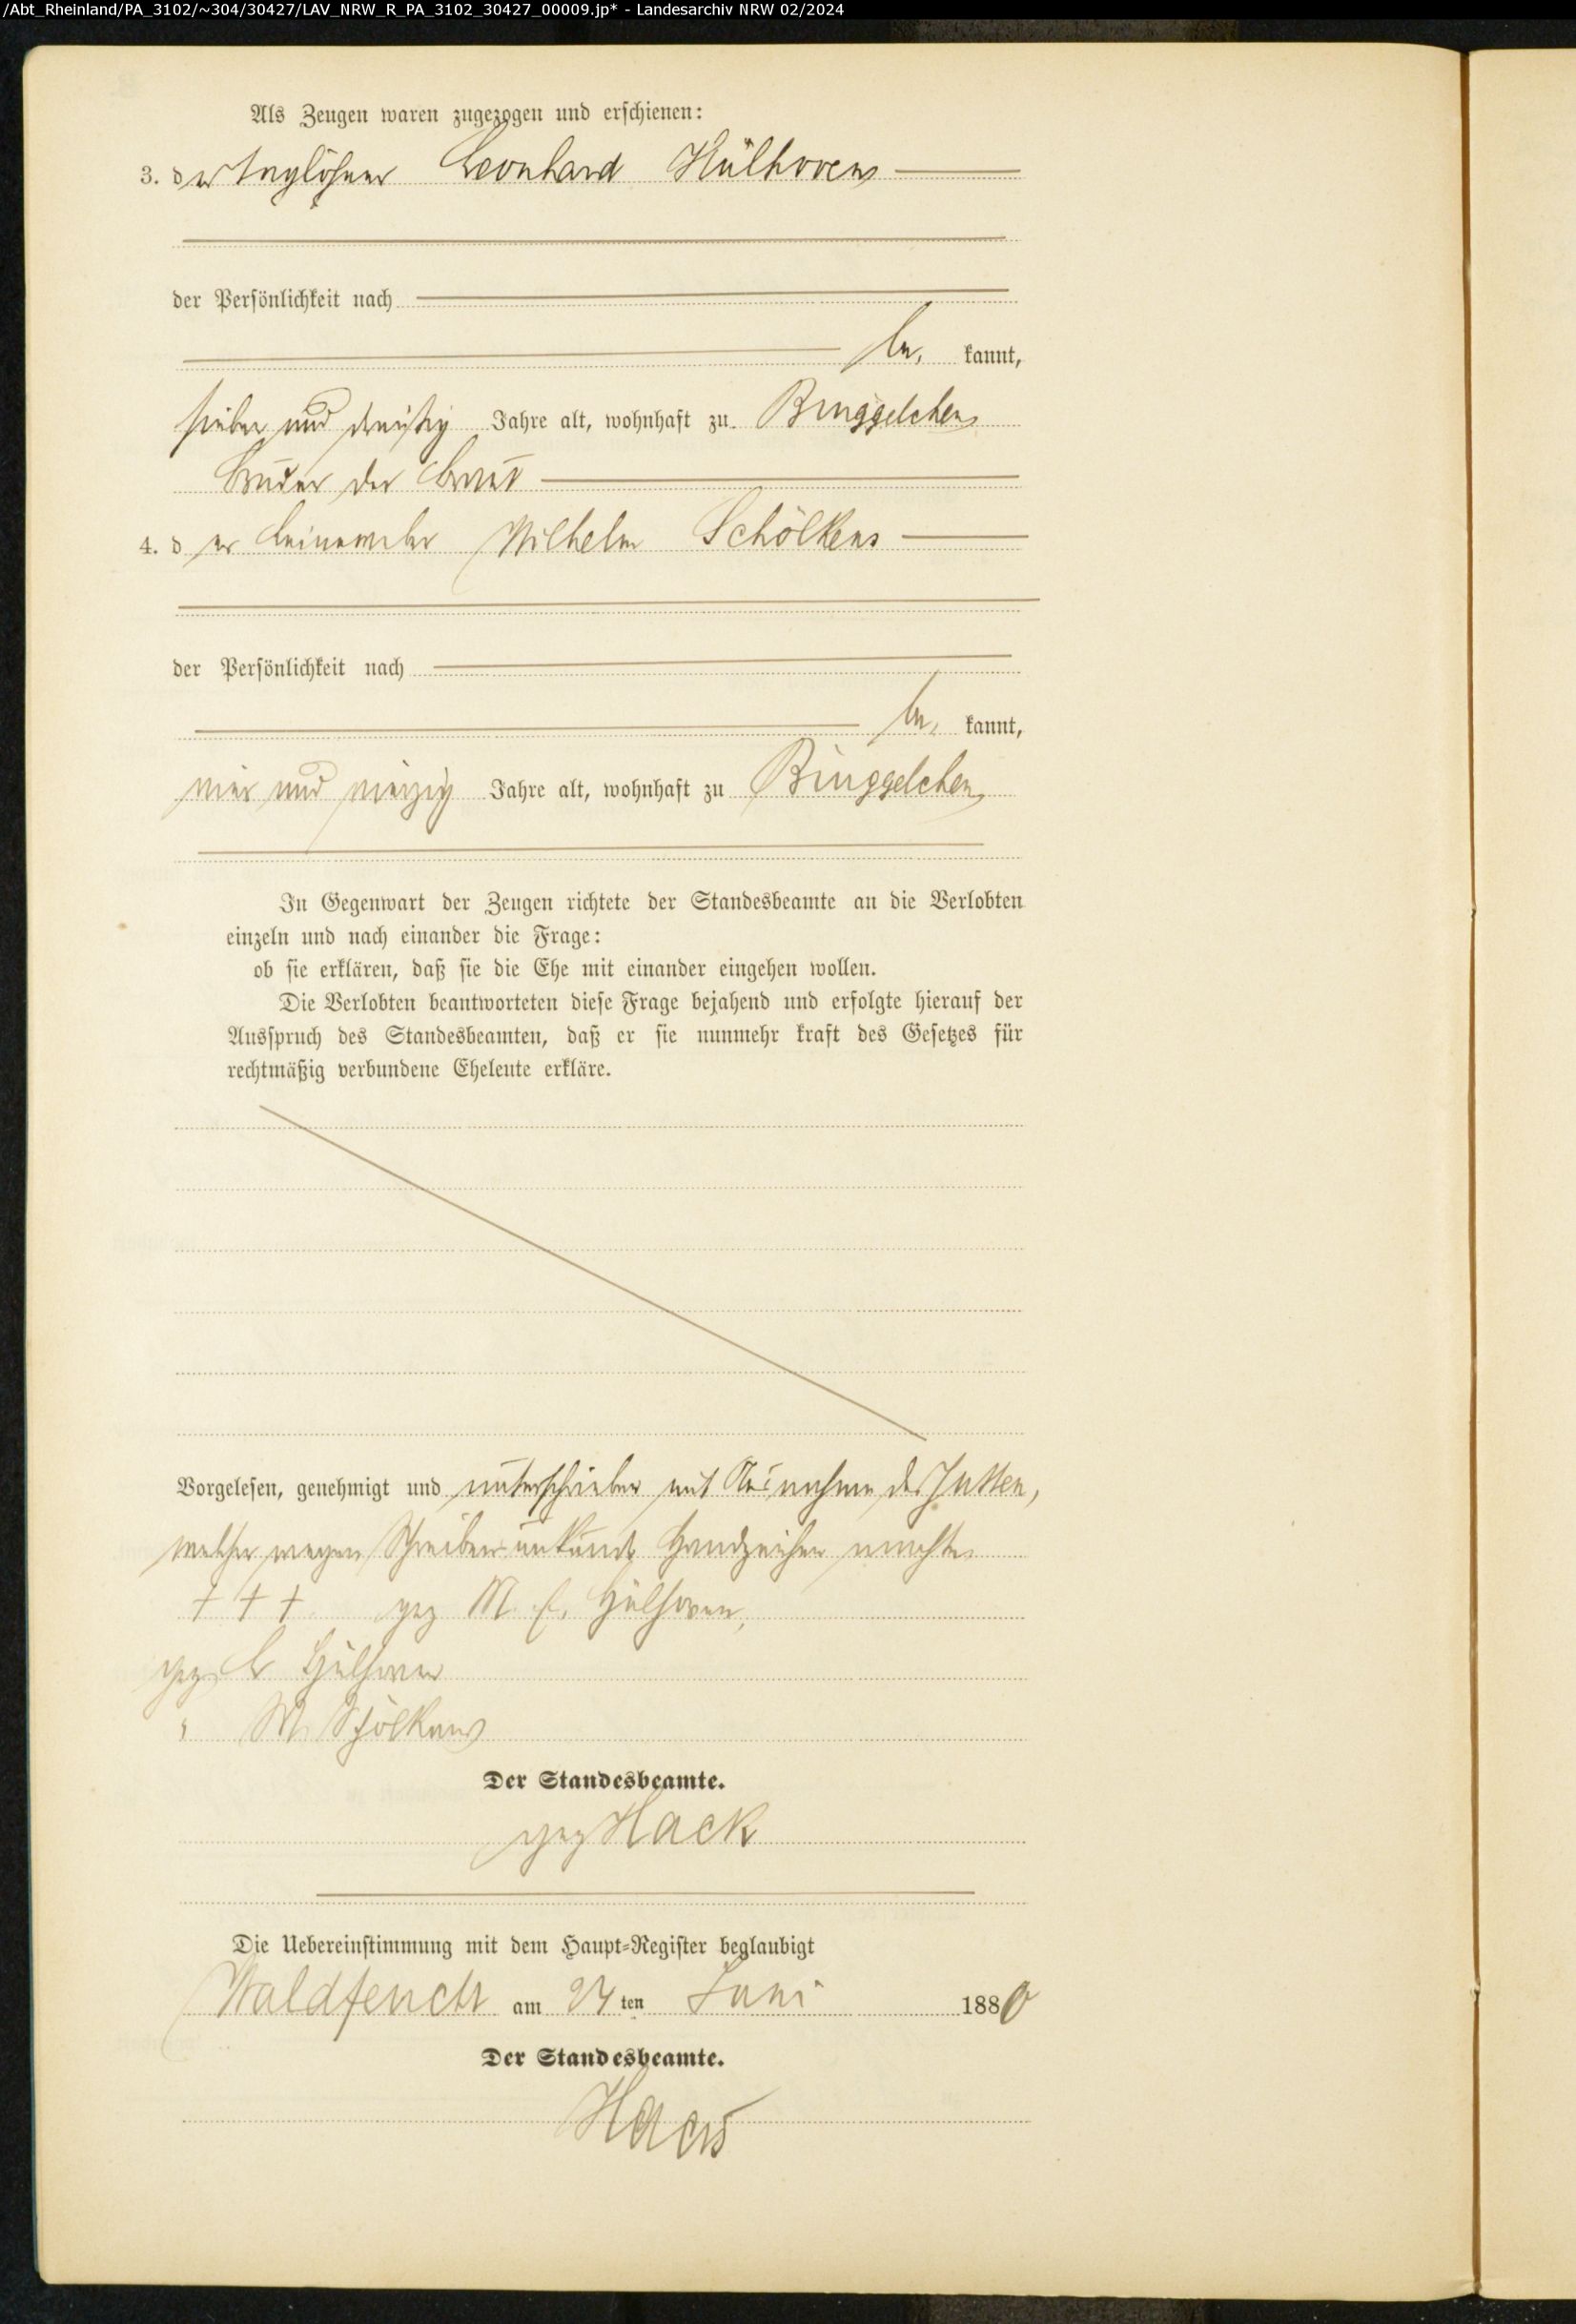 /Abt_Rheinland/PA_3102/~304/30427/LAV_NRW_R_PA_3102_30427_00009.jp* - Landesarchiv NRW 02/2024
Als Zeugen waren zugezogen und erschienen:
3. der Taglöhner Leonhard Hülhoven
der Persönlichkeit nach
be kannt,
sieben und dreißig Jahre alt, wohnhaft zu Brüggelchen
Bruder der Braut
4. der Leineweber Wilhelm Schölkens
der Persönlichkeit nach
be kannt,
vier und vierzig Jahre alt, wohnhaft zu Brüggelchen
In Gegenwart der Zeugen richtete der Standesbeamte an die Verlobten
einzeln und nach einander die Frage:
ob sie erklären, daß sie die Ehe mit einander eingehen wollen.
Die Verlobten beantworteten diese Frage bejahend und erfolgte hierauf der
Ausspruch des Standesbeamten, daß er sie nunmehr kraft des Gesetzes für
rechtmäßig verbundene Eheleute erkläre.
Vorgelesen, genehmigt und unterschrieben mit Ausnahme des Jutten,
welcher wegen Schreibensunkunde Handzeichen machte
+ + + gez M. C. Hülhoven,
gez. L Hülhoven
" W. Schölkens
Der Standesbeamte.
gez Hack
Die Uebereinstimmung mit dem Haupt-Register beglaubigt
Waldfeucht am 24 ten Juni 1880
Der Standesbeamte.
Hack